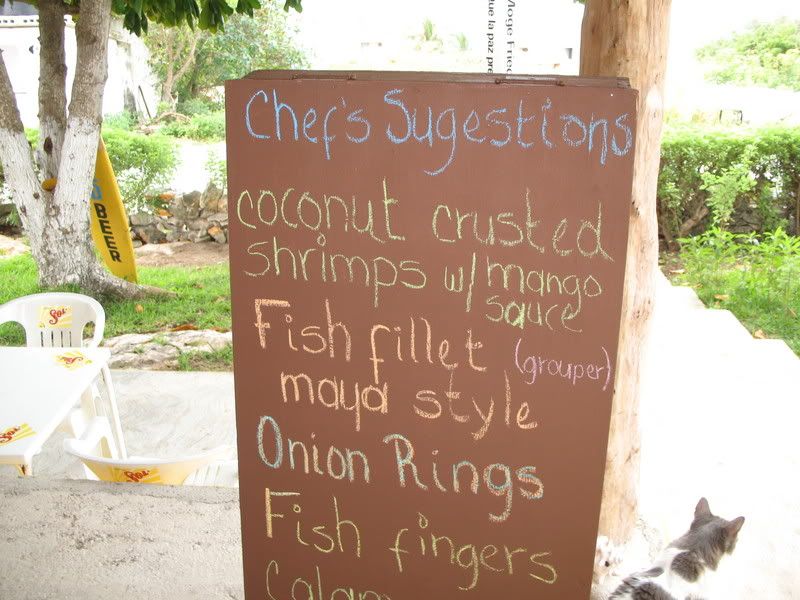 Moge Fried
que la paz pre
Chef's Sugestions
coconut crusted
shrimps w/ mango
sauce
Fish fillet (grouper)
maya style
Onion Rings
Fish fingers
Calam
BEER
Sol
Sol
Sol
Sol